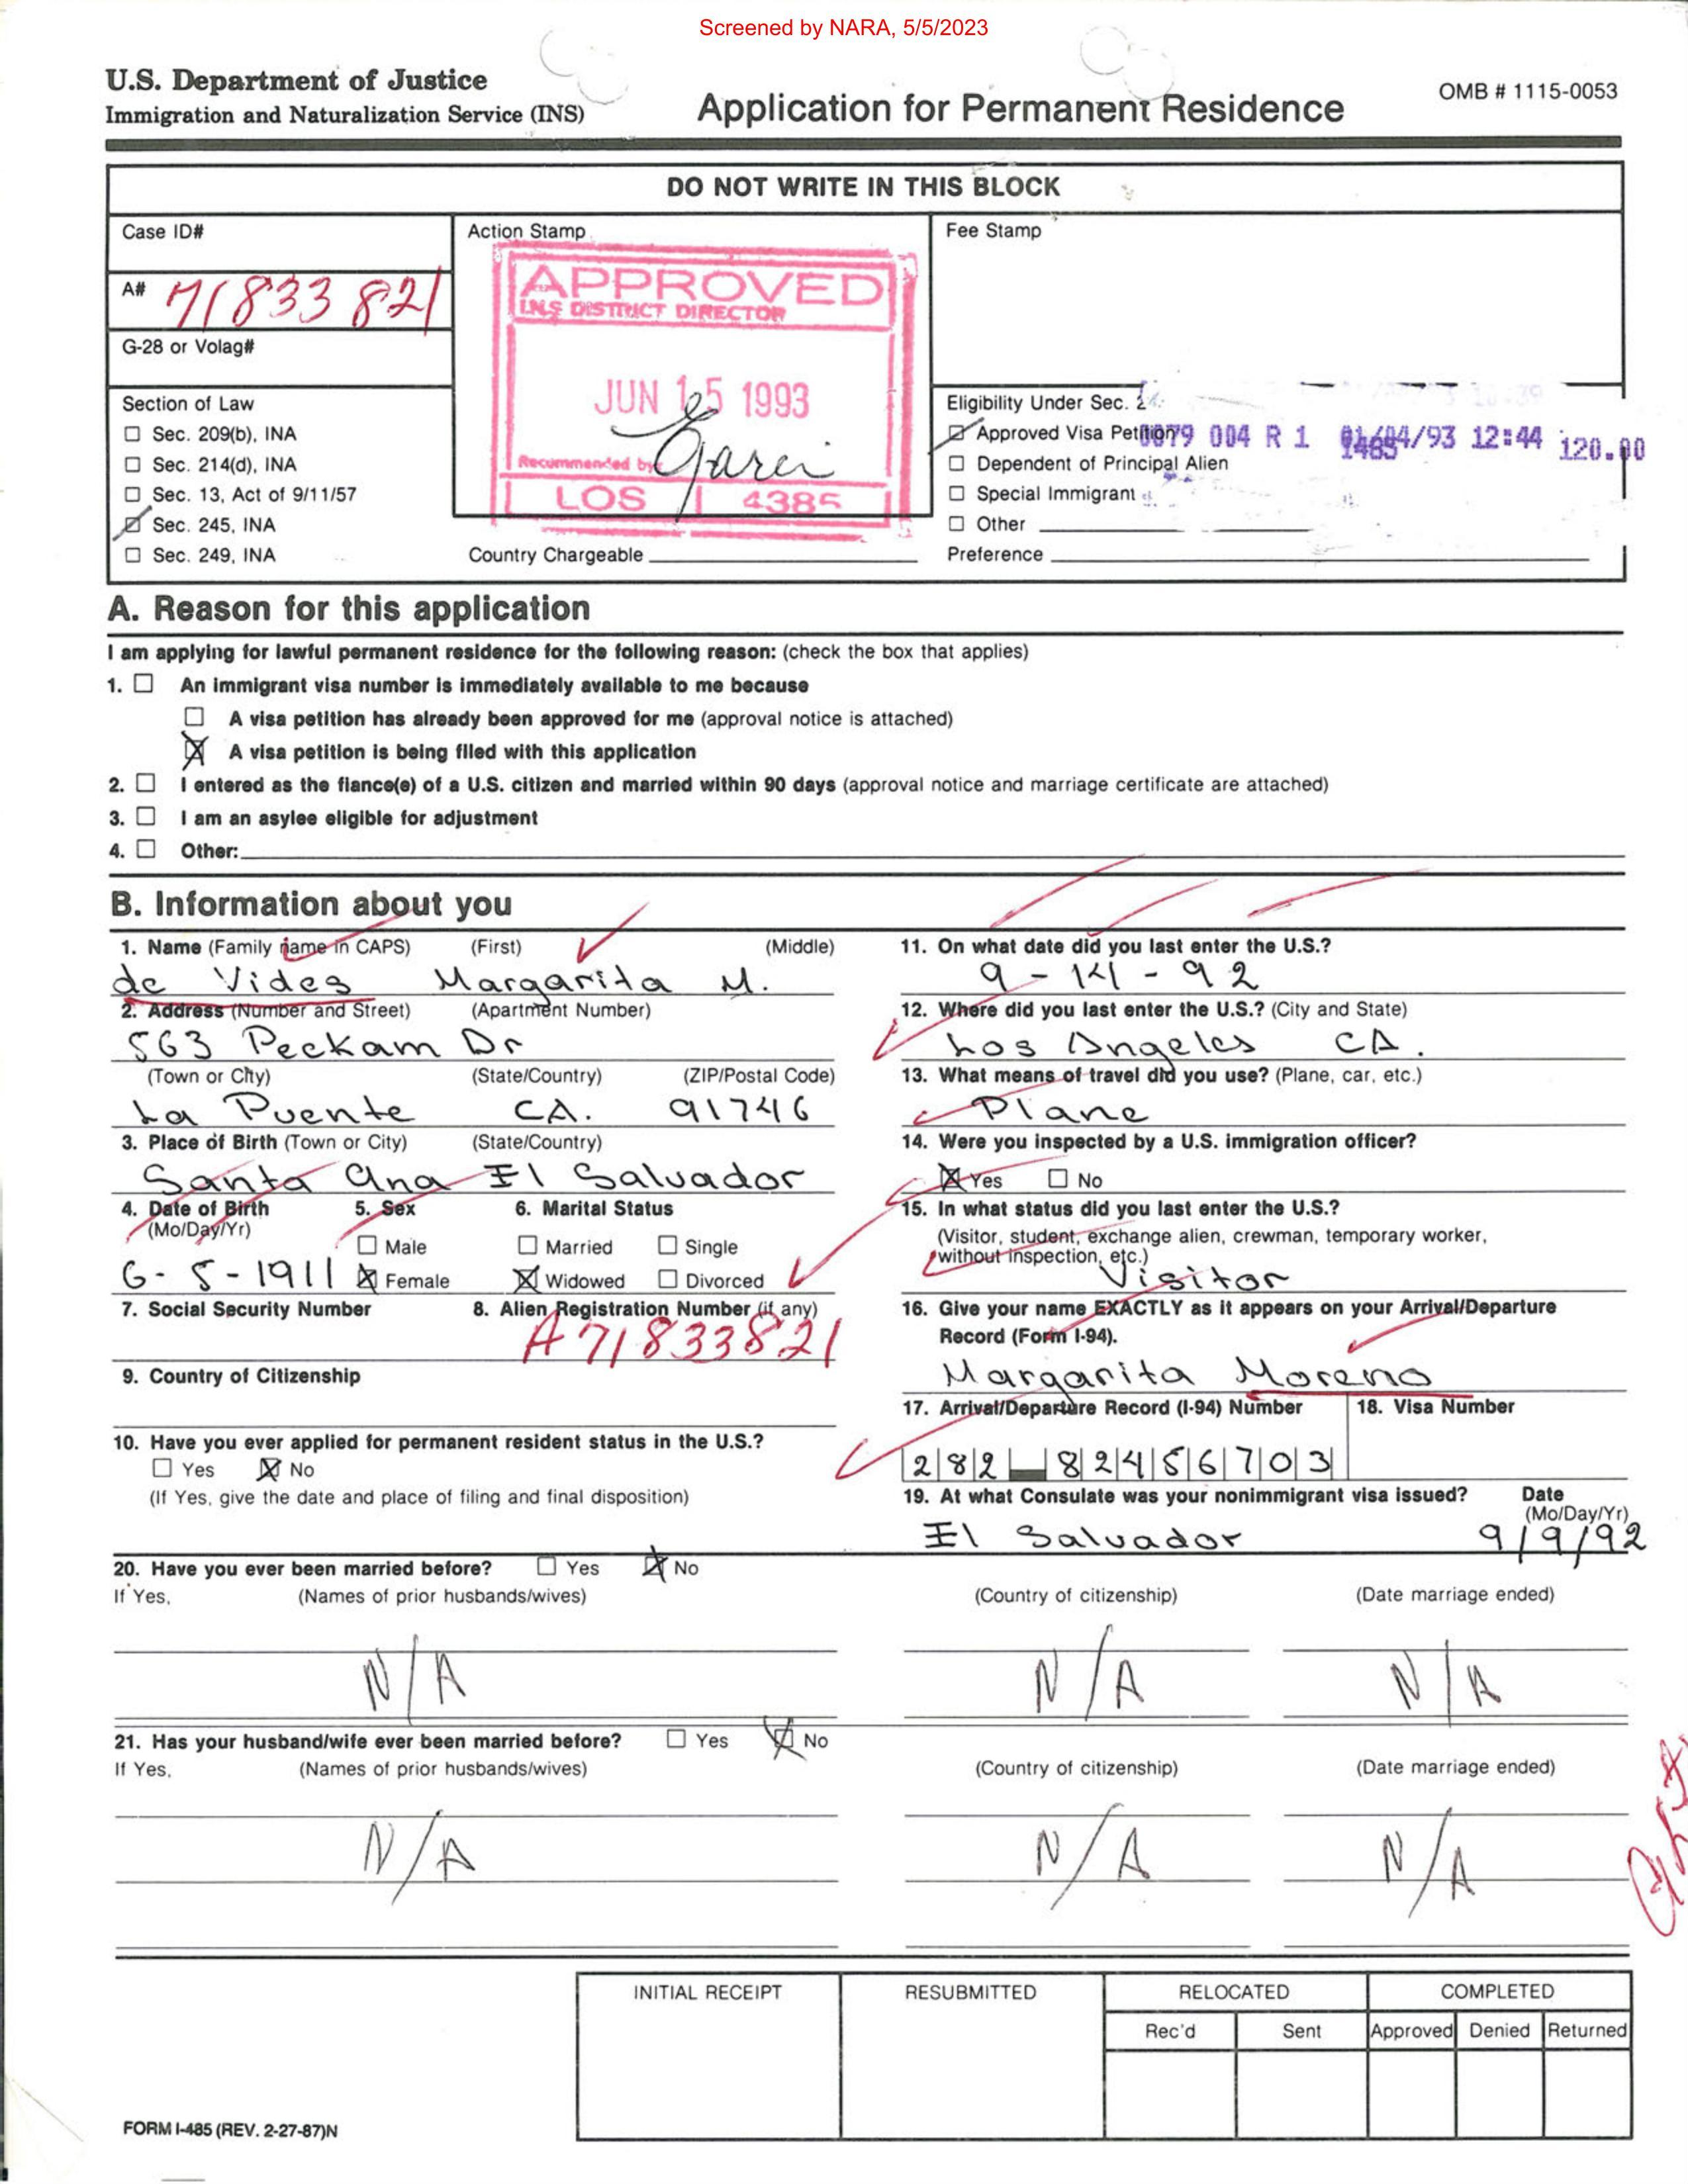 Screened by NARA, 5/5/2023
U.S. Department of Justice
Immigration and Naturalization Service (INS)
Application for Permanent Residence
OMB # 1115-0053
DO NOT WRITE IN THIS BLOCK
Case ID#
A# 71833821
G-28 or Volag#
Section of Law
☐ Sec. 209(b), INA
☐ Sec. 214(d), INA
☐ Sec. 13, Act of 9/11/57
☑ Sec. 245, INA
☐ Sec. 249, INA
Action Stamp
APPROVED
I.N.S DISTRICT DIRECTOR
JUN 15 1993
Recommended by
LOS 4385
Country Chargeable
Fee Stamp
Eligibility Under Sec.
☑ Approved Visa Petition
0079 004 R 1 01/04/93 12:44 120.00
☐ Dependent of Principal Alien
☐ Special Immigrant
☐ Other
Preference
A. Reason for this application
I am applying for lawful permanent residence for the following reason: (check the box that applies)
1. ☐ An immigrant visa number is immediately available to me because
☐ A visa petition has already been approved for me (approval notice is attached)
☒ A visa petition is being filed with this application
2. ☐ I entered as the fiance(e) of a U.S. citizen and married within 90 days (approval notice and marriage certificate are attached)
3. ☐ I am an asylee eligible for adjustment
4. ☐ Other:
B. Information about you
1. Name (Family name in CAPS) (First) (Middle)
de Vides Margarita M.
2. Address (Number and Street) (Apartment Number)
563 Peckam Dr
(Town or City) (State/Country) (ZIP/Postal Code)
La Puente CA. 91746
3. Place of Birth (Town or City) (State/Country)
Santa Ana El Salvador
4. Date of Birth 5. Sex 6. Marital Status
(Mo/Day/Yr)
☐ Male ☐ Married ☐ Single
6-5-1911 ☒ Female ☒ Widowed ☐ Divorced
7. Social Security Number 8. Alien Registration Number (if any)
A71833821
9. Country of Citizenship
10. Have you ever applied for permanent resident status in the U.S.?
☐ Yes ☒ No
(If Yes, give the date and place of filing and final disposition)
11. On what date did you last enter the U.S.?
9-14-92
12. Where did you last enter the U.S.? (City and State)
Los Angeles CA.
13. What means of travel did you use? (Plane, car, etc.)
Plane
14. Were you inspected by a U.S. immigration officer?
☒ Yes ☐ No
15. In what status did you last enter the U.S.?
(Visitor, student, exchange alien, crewman, temporary worker,
without inspection, etc.)
Visitor
16. Give your name EXACTLY as it appears on your Arrival/Departure
Record (Form I-94).
Margarita Moreno
17. Arrival/Departure Record (I-94) Number 18. Visa Number
282 82456703
19. At what Consulate was your nonimmigrant visa issued? Date
(Mo/Day/Yr)
El Salvador 9/9/92
20. Have you ever been married before? ☐ Yes ☒ No
If Yes, (Names of prior husbands/wives) (Country of citizenship) (Date marriage ended)
N/A N/A N/A
21. Has your husband/wife ever been married before? ☐ Yes ☒ No
If Yes, (Names of prior husbands/wives) (Country of citizenship) (Date marriage ended)
N/A N/A N/A
INITIAL RECEIPT RESUBMITTED RELOCATED COMPLETED
Rec'd Sent Approved Denied Returned
FORM I-485 (REV. 2-27-87)N